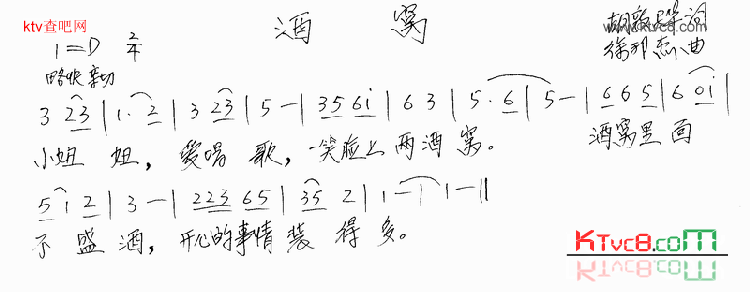 ktv查吧网
酒窝
www.ktvc8.com
1=D 2/4
徐邦杰曲
略快 亲切
3 23 | 1. 2 | 3 23 | 5 - | 35 6i | 6 3 | 5. 6 | 5 - | 6 6 5 | 6 0i |
小姐 姐，爱唱 歌，笑脸上 两酒 窝。 酒窝里面
5 i 2 | 3 - | 223 65 | 35 2 | 1 - | 1 - ‖
不 盛 酒，开心的事情 装 得 多。
KTvc8.com